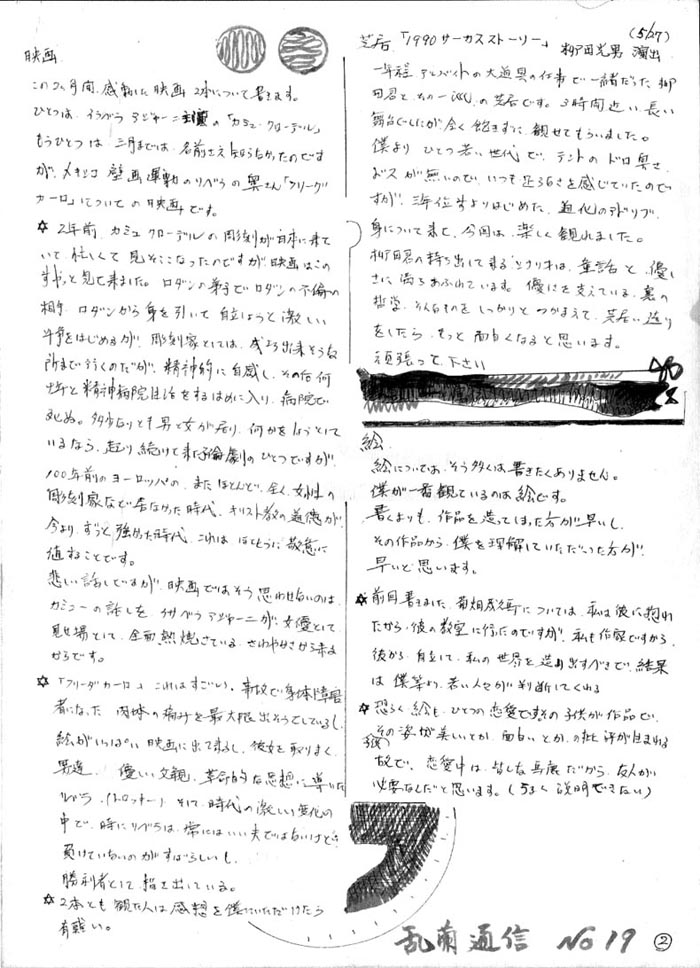 映画
この2ヶ月間、感動した映画2本について書きます。
ひとつは、イザベラ アジャーニ の「カミュ・クローデル」
もうひとつは、三月までは、名前さえ知らなかったのです
が、メキシコ壁画運動のリベラの奥さん「フリーダ
カーロ」についての映画です。
☆2年前、カミュクローデルの彫刻が日本に来て
いて、忙しくて見そこなったのですが映画はこの
見て来ました。ロダンの弟子でロダンの不倫の
相手、ロダンから身を引いて自立しようと激しい
斗争をはじめるが、彫刻家としては、成功出来そうな
所まで行くのだが、精神的に自滅し、その后何
十年と精神病院生活をするはめに入り、病院で
死ぬ。多かれ少なかれ男と女が居り、何かをしようとして
いるなら、起り続けて来た 劇のひとつですが、
100年前のヨーロッパの、まだほとんど、全く、女性の
彫刻家など居なかった時代、キリスト教の道徳が
今より、ずっと強かった時代、これは ほんとうに敬意に
値することです。
悲しい話しですが、映画ではそう思わせないのは、
カミューの話しを イサベラアジャーニが、女優として
見せ場として、全面熱焼さている、さわやかさから来る
からです。
☆「フリーダカーロ」これはすごい、事故で身体障害
者になった 肉体の痛みを最大限出そうでしているし、
絵がいっぱい映画に出て来るし、彼女を取りまく
男達、優しい父親、革命的な思想に導いた
リベラ、(トロッキー)そして、時代の激しい変化の
中で、時にリベラは、常にはいい夫ではないけど
負けていないのがすばらしいし、
勝利者として描き出している。
☆2本とも観た人は感想を僕にいただけたら
有難い。
(5/27)
芝居「1990サーカスストーリー」 柳田 男 演出
一年程 アルバイトの大道具の仕事で一緒だった柳
田君と、その一派の芝居です。3時間近い長い
舞台でしたが全く飽きずに観せてもらいました。
僕より ひとつ若い世代で、テントのドロ臭さ、
が無いので、いつも 足らなさを感じていたので
すが、三年位まえよりはじめた、道化のアドリブ、
身について来て、今回は、楽しく観れました。
柳田君の持ち出して来るシナリオは、童話と、優し
さに満ちあふれています。優しさを支えている、裏の
哲学、そんなものを しっかりと つかまえて、芝居造り
をしたら、もっと面白くなると思います。
頑張って下さい
絵
絵については、そう多くは書きたくありません。
僕が一番観ているのは絵です。
書くよりも、作品を造ってしまった方が早いし、
その作品から、僕を理解していただいた方が、
早いと思います。
☆前回書きました、菊畑茂久馬については、私は彼に惚れ
たから、彼の教室に行ったのですが、私も作家ですから、
彼から、自立して、私の世界を造り出すべきで、結果
は 僕等より、若い人々が判断してくれる
☆恐らく絵も、ひとつの恋愛ですその子供が作品で、
その姿が美しいとか、面白いとか、の批評が生まれる
故で、恋愛中は、皆しな真展だから、友人が
必要なんだと思います。(うまく説明できない)
乱蘭通信 No19 ②